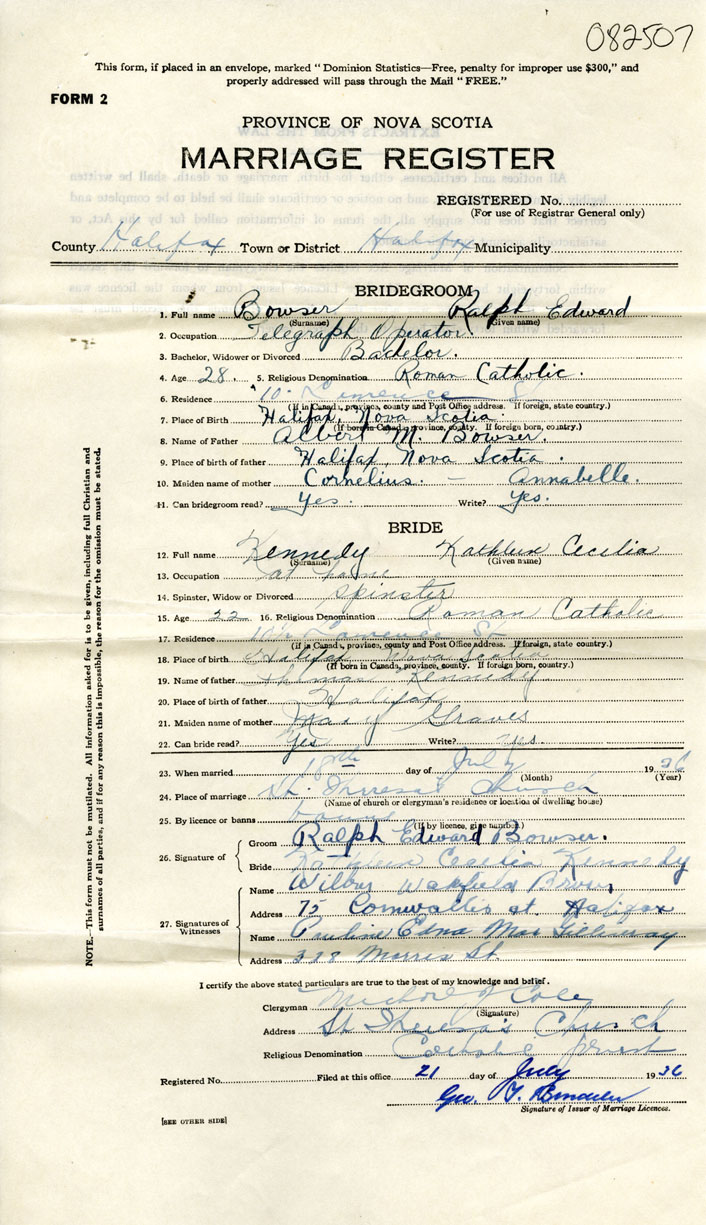 082507
This form, if placed in an envelope, marked "Dominion Statistics—Free, penalty for improper use $300," and
properly addressed will pass through the Mail "FREE."
FORM 2
PROVINCE OF NOVA SCOTIA
MARRIAGE REGISTER
REGISTERED No.
(For use of Registrar General only)
County Halifax Town or District Halifax Municipality
BRIDEGROOM
1. Full name Bowser Ralph Edward
(Surname) (Given name)
2. Occupation Telegraph Operator.
3. Bachelor, Widower or Divorced Bachelor.
4. Age 28. 5. Religious Denomination Roman Catholic.
6. Residence
(If in Canada, province, county and Post Office address. If foreign, state country.)
7. Place of Birth Halifax, Nova Scotia.
(If born in Canada, province, county. If foreign born, country.)
8. Name of Father Albert M. Bowser.
9. Place of birth of father Halifax, Nova Scotia.
10. Maiden name of mother Cornelius. – Annabelle.
11. Can bridegroom read? Yes. Write? Yes.
BRIDE
12. Full name Kennedy Kathleen Cecilia
(Surname) (Given name)
13. Occupation at home
14. Spinster, Widow or Divorced Spinster
15. Age 22 16. Religious Denomination Roman Catholic
17. Residence Lawrence St
(if in Canada, province, county and Post Office address. If foreign, state country.)
18. Place of birth Halifax Nova Scotia
(If born in Canada, province, county. If foreign born, country.)
19. Name of father Thomas Kennedy
20. Place of birth of father Halifax
21. Maiden name of mother Mary Graves
22. Can bride read? Yes Write? Yes.
23. When married 18th day of July 1936
(Month) (Year)
24. Place of marriage St. Theresa's Church
(Name of church or clergyman's residence or location of dwelling house)
25. By licence or banns banns
(If by licence, give number.)
26. Signature of
Groom Ralph Edward Bowser.
Bride Kathleen Cecilia Kennedy
27. Signatures of Witnesses
Name Wilby Wakefield Brown
Address 75 Cornwallis st. Halifax
Name Pauline Edna
Address Morris St
I certify the above stated particulars are true to the best of my knowledge and belief.
Clergyman Cole
(Signature)
Address St Theresa's Church
Religious Denomination priest
Registered No. Filed at this office 21 day of July 1936
Geo.
Signature of Issuer of Marriage Licences.
[SEE OTHER SIDE]
NOTE.—This form must not be mutilated. All information asked for is to be given, including full Christian and
surnames of all parties, and if for any reason this is impossible, the reason for the omission must be stated.